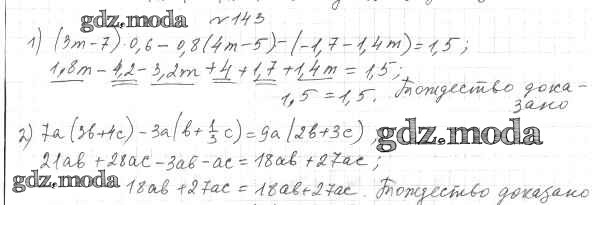 gdz.moda № 143
1) (3m-7)·0,6-0,8(4m-5)-(-1,7-1,4m)=1,5;
1,8m-4,2-3,2m+4+1,7+1,4m=1,5;
1,5=1,5. Тождество дока-
зано
2) 7a(3b+4c)-3a(b+1/3c)=9a(2b+3c), gdz.moda
21ab+28ac-3ab-ac=18ab+27ac;
gdz.moda 18ab+27ac=18ab+27ac. Тождество доказано